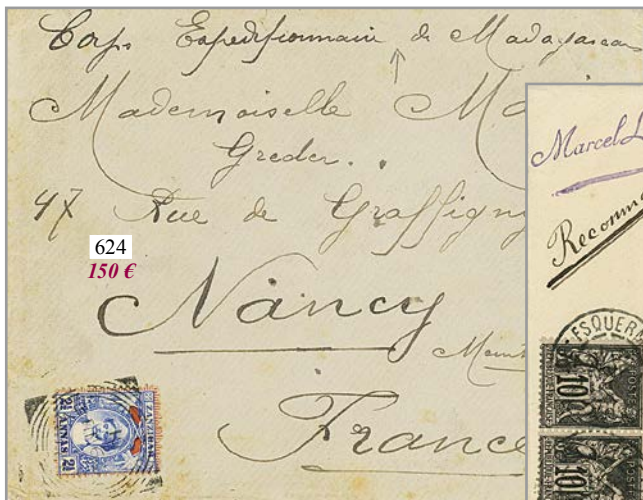 Corps Expeditionnaire de Madagascar
Mademoiselle
Greder.
47 Rue de Graffigny
624
150 €
Nancy
France
ZANZIBAR
2½ ANNAS 2½
Marcel
Recomm
ESQUER
10
10